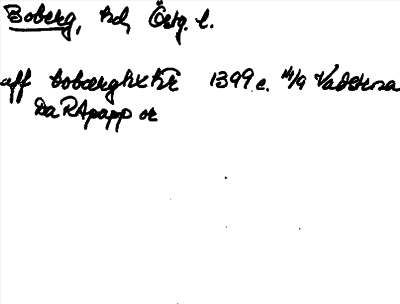 Boberg, hd, Östg. l.
aff bobærghx hr 1399 c. 14/9 Vadstena
Da RA papp or